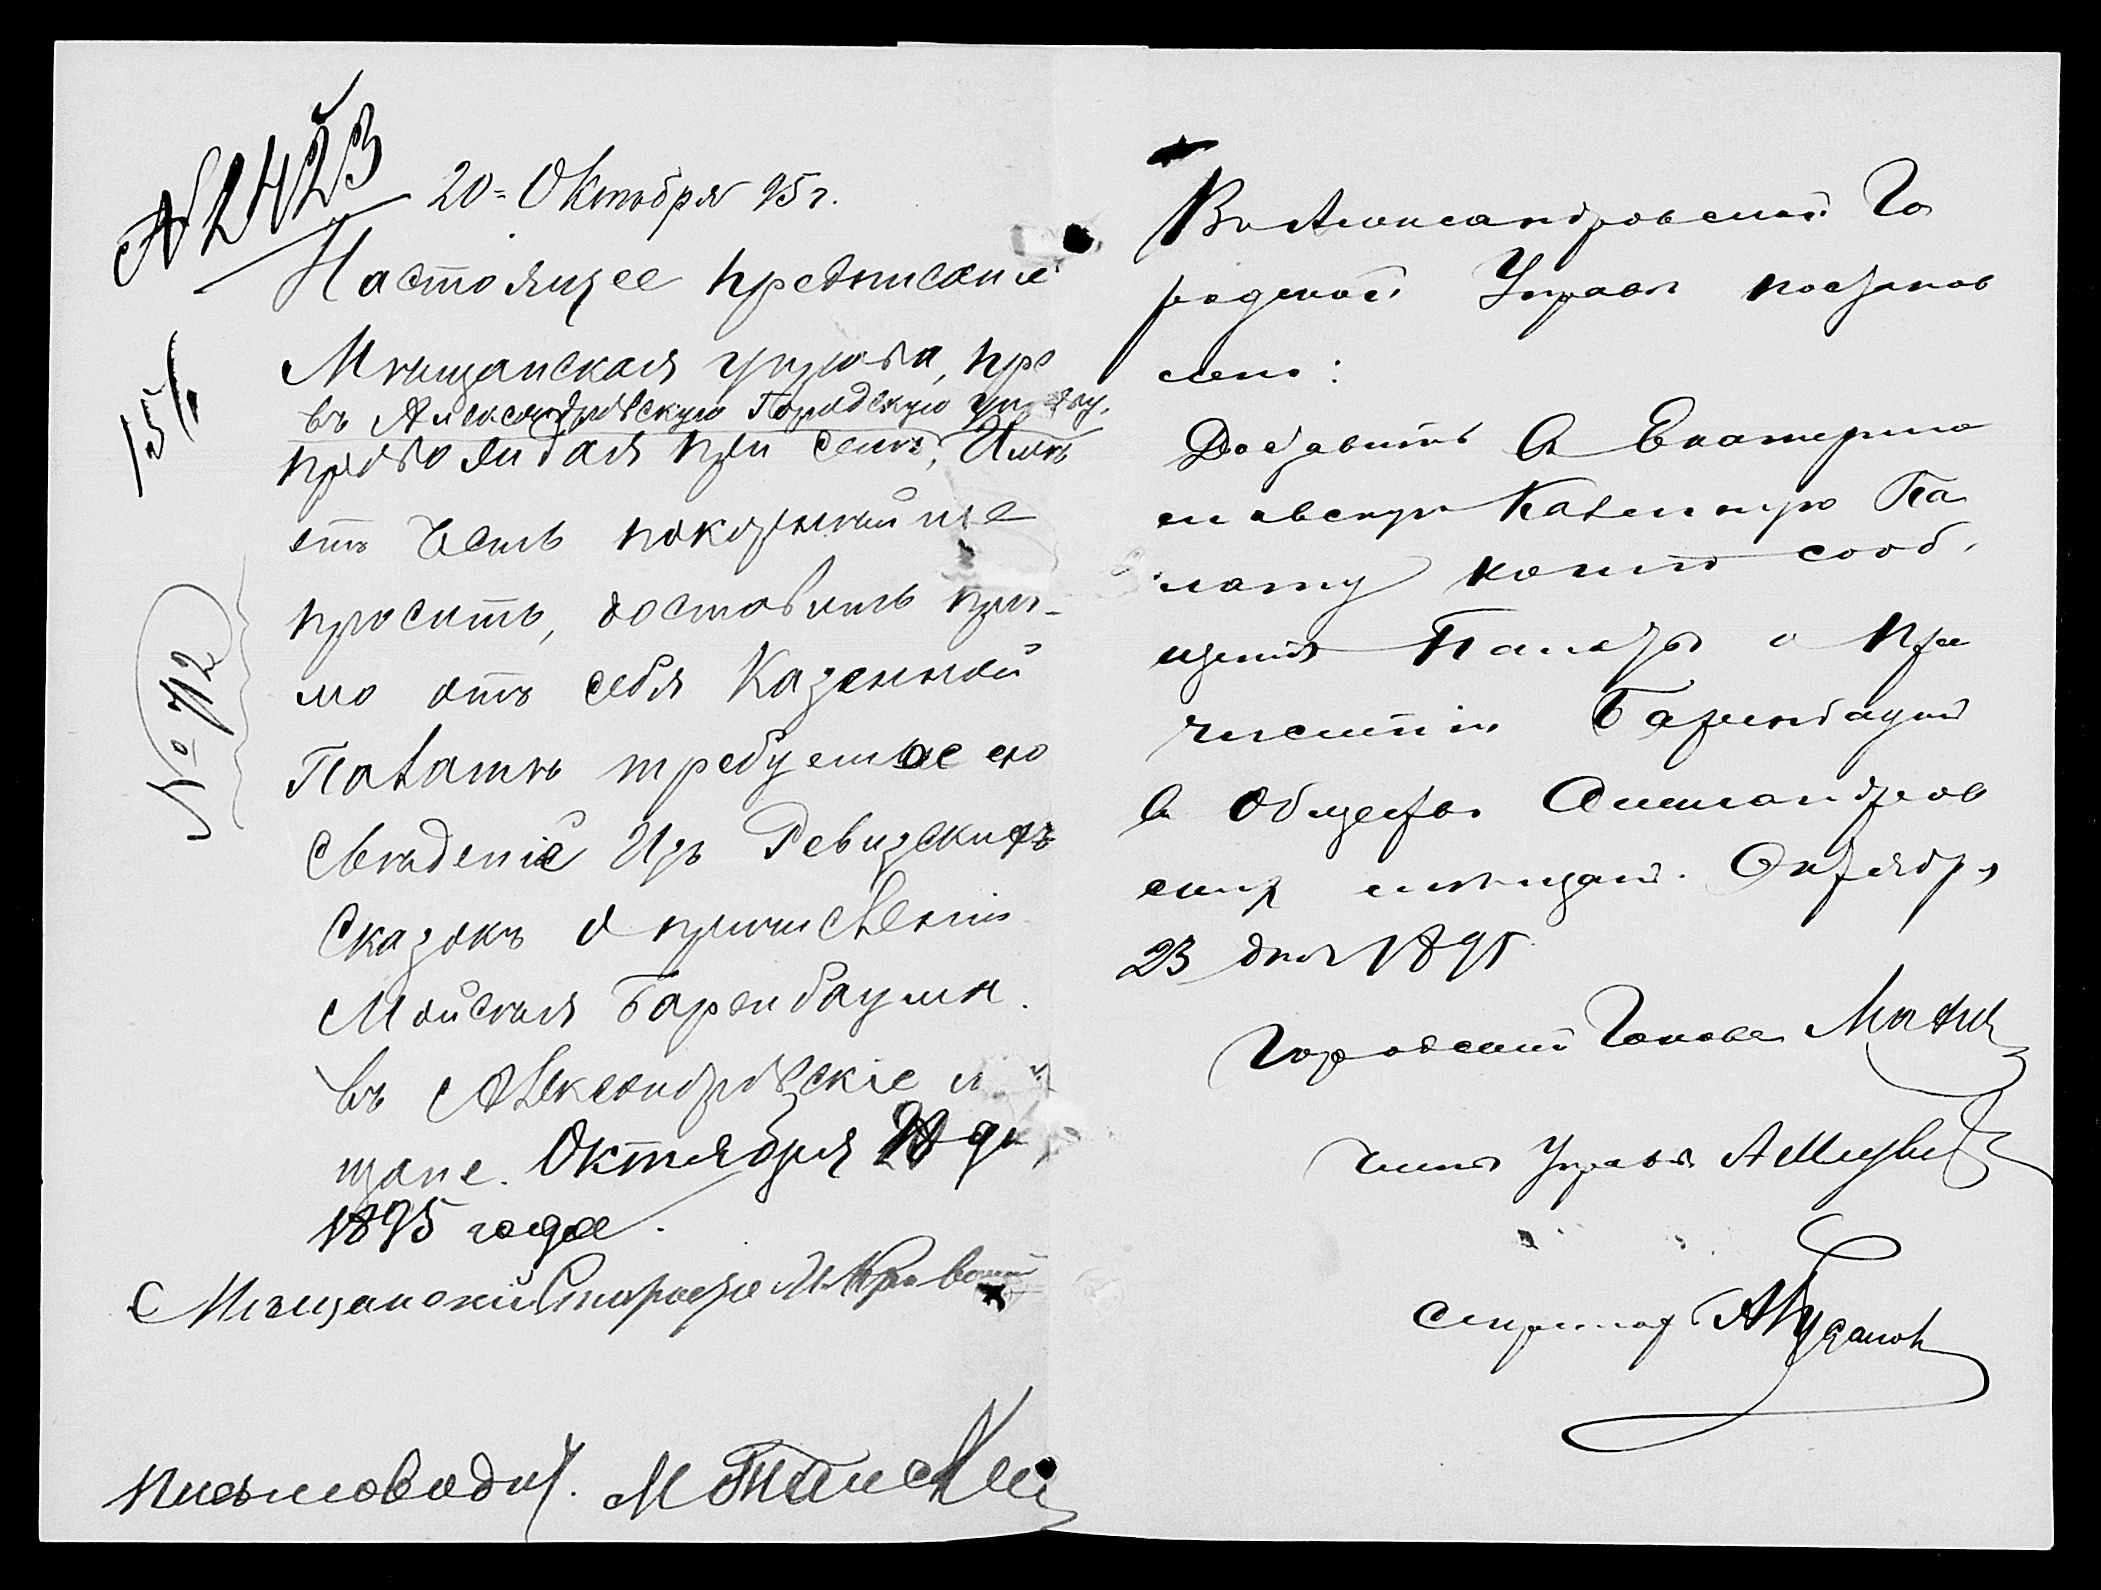 № 2423
20 = Октября 95 г.
Настоящее предписание
Мѣщанская управа, пре
въ Александровскую Городскую управу.
провождая при семъ, Имѣ
етъ честь покорнѣйше
просить, доставить пря-
мо отъ себя Казенной
Палатѣ требуемое ею
свѣденіе Изъ Ревизскихъ
Сказокъ о причисленіи
Мойсѣя Баренбаума
въ Александровскіе м
щане. Октября дня
1895 года.
Мѣщанский Староста
Письмоводит. М
№ 712
Въ Александровской Го
родской Управѣ постанов
лено:
Доставить въ Екатерино
славскую Казенную Па
лату копію сооб
щенія Палаты о при
численіи Баренбаума
въ Общество Александров
скихъ мѣщанъ. Октября
23 дня 1895
Городской Голова
Членъ Управы А
Секретарь